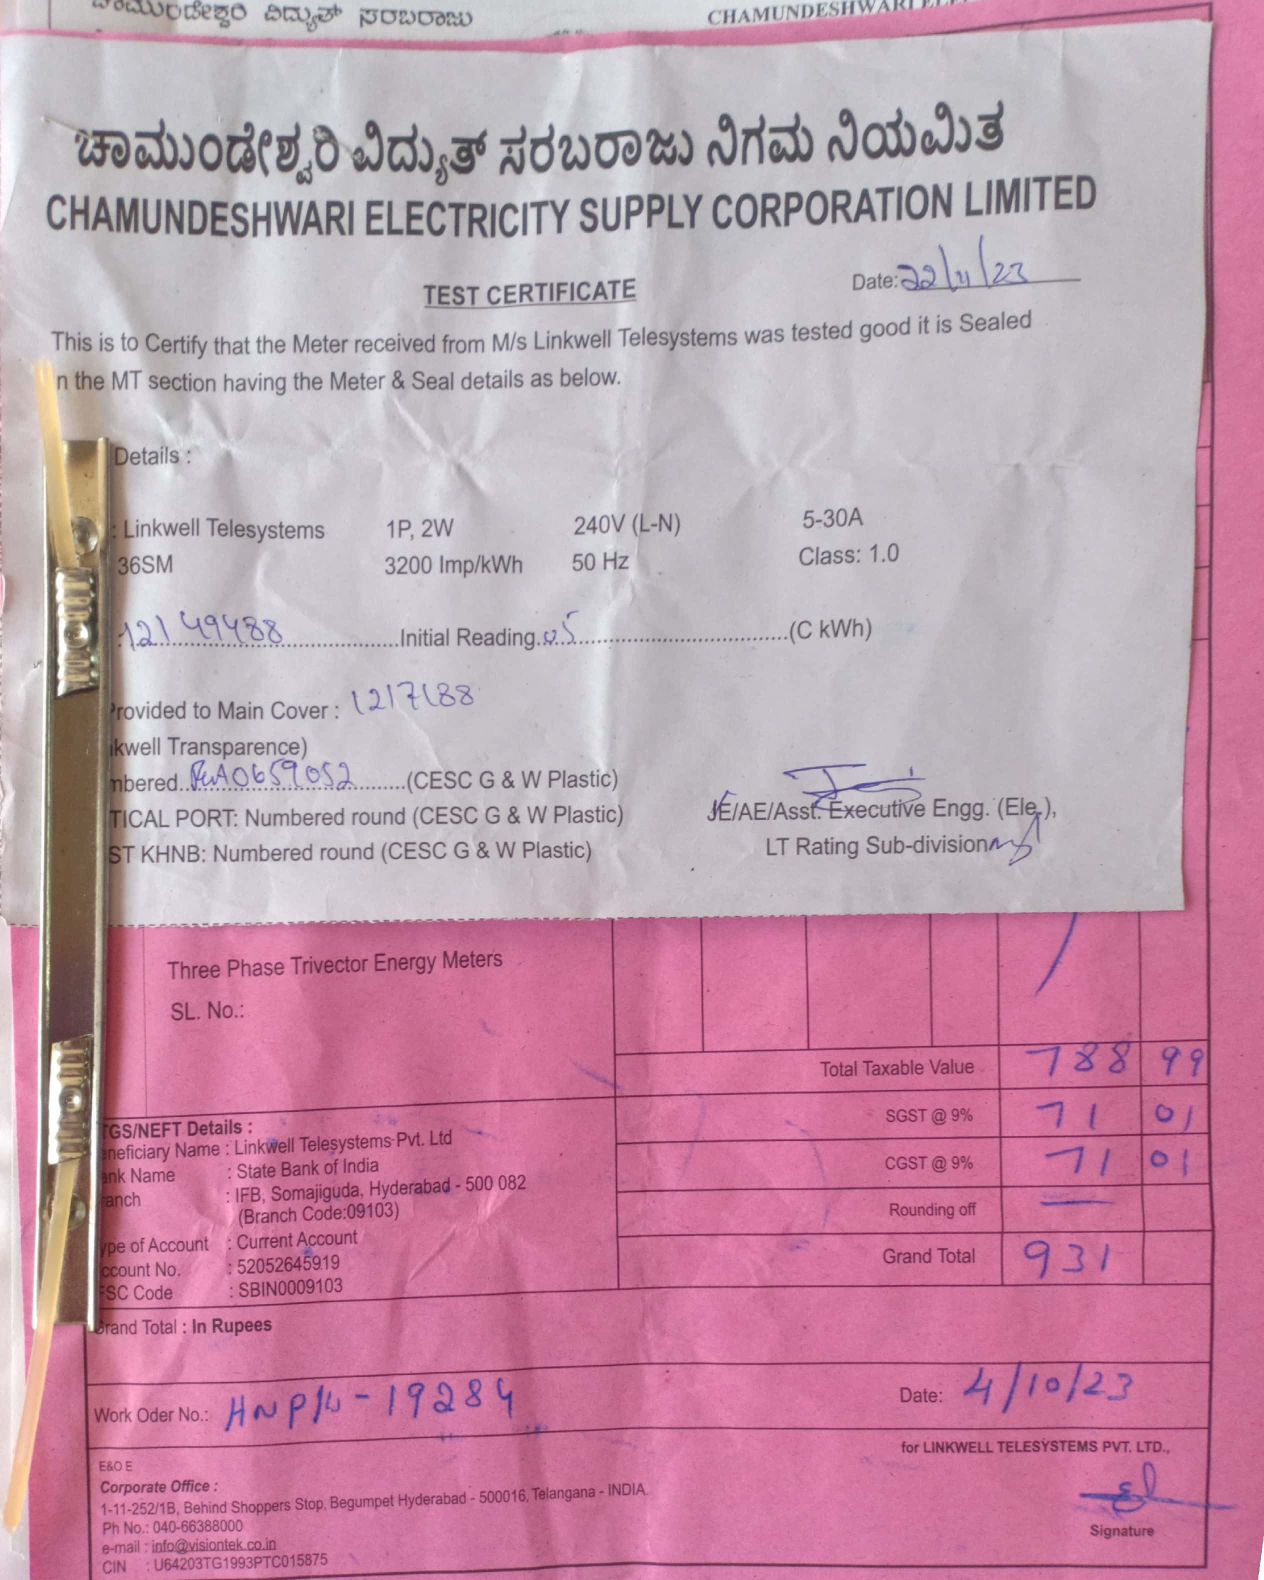 ಚಾಮುಂಡೇಶ್ವರಿ ವಿದ್ಯುತ್ ಸರಬರಾಜು
CHAMUNDESHWARI
ಚಾಮುಂಡೇಶ್ವರಿ ವಿದ್ಯುತ್ ಸರಬರಾಜು ನಿಗಮ ನಿಯಮಿತ
CHAMUNDESHWARI ELECTRICITY SUPPLY CORPORATION LIMITED
Date: 22/11/23
TEST CERTIFICATE
This is to Certify that the Meter received from M/s Linkwell Telesystems was tested good it is Sealed
n the MT section having the Meter & Seal details as below.
Details :
: Linkwell Telesystems 1P, 2W 240V (L-N) 5-30A
36SM 3200 Imp/kWh 50 Hz Class: 1.0
12149488 Initial Reading 05 (C kWh)
Provided to Main Cover : 1217188
kwell Transparence)
mbered 0659052 (CESC G & W Plastic)
TICAL PORT: Numbered round (CESC G & W Plastic)
JE/AE/Asst. Executive Engg. (Ele.),
ST KHNB: Numbered round (CESC G & W Plastic)
LT Rating Sub-division
Three Phase Trivector Energy Meters
SL. No.:
Total Taxable Value 788 99
SGST @ 9% 71 01
CGST @ 9% 71 01
Rounding off —
Grand Total 931
TGS/NEFT Details :
eneficiary Name : Linkwell Telesystems Pvt. Ltd
ank Name : State Bank of India
ranch : IFB, Somajiguda, Hyderabad - 500 082
(Branch Code:09103)
ype of Account : Current Account
ccount No. : 52052645919
FSC Code : SBIN0009103
Grand Total : In Rupees
Work Oder No.: HNP/W-19284
Date: 4/10/23
for LINKWELL TELESYSTEMS PVT. LTD.,
E&O E
Corporate Office :
1-11-252/1B, Behind Shoppers Stop, Begumpet Hyderabad - 500016, Telangana - INDIA
Ph No.: 040-66388000
e-mail : info@visiontek.co.in
CIN : U64203TG1993PTC015875
Signature